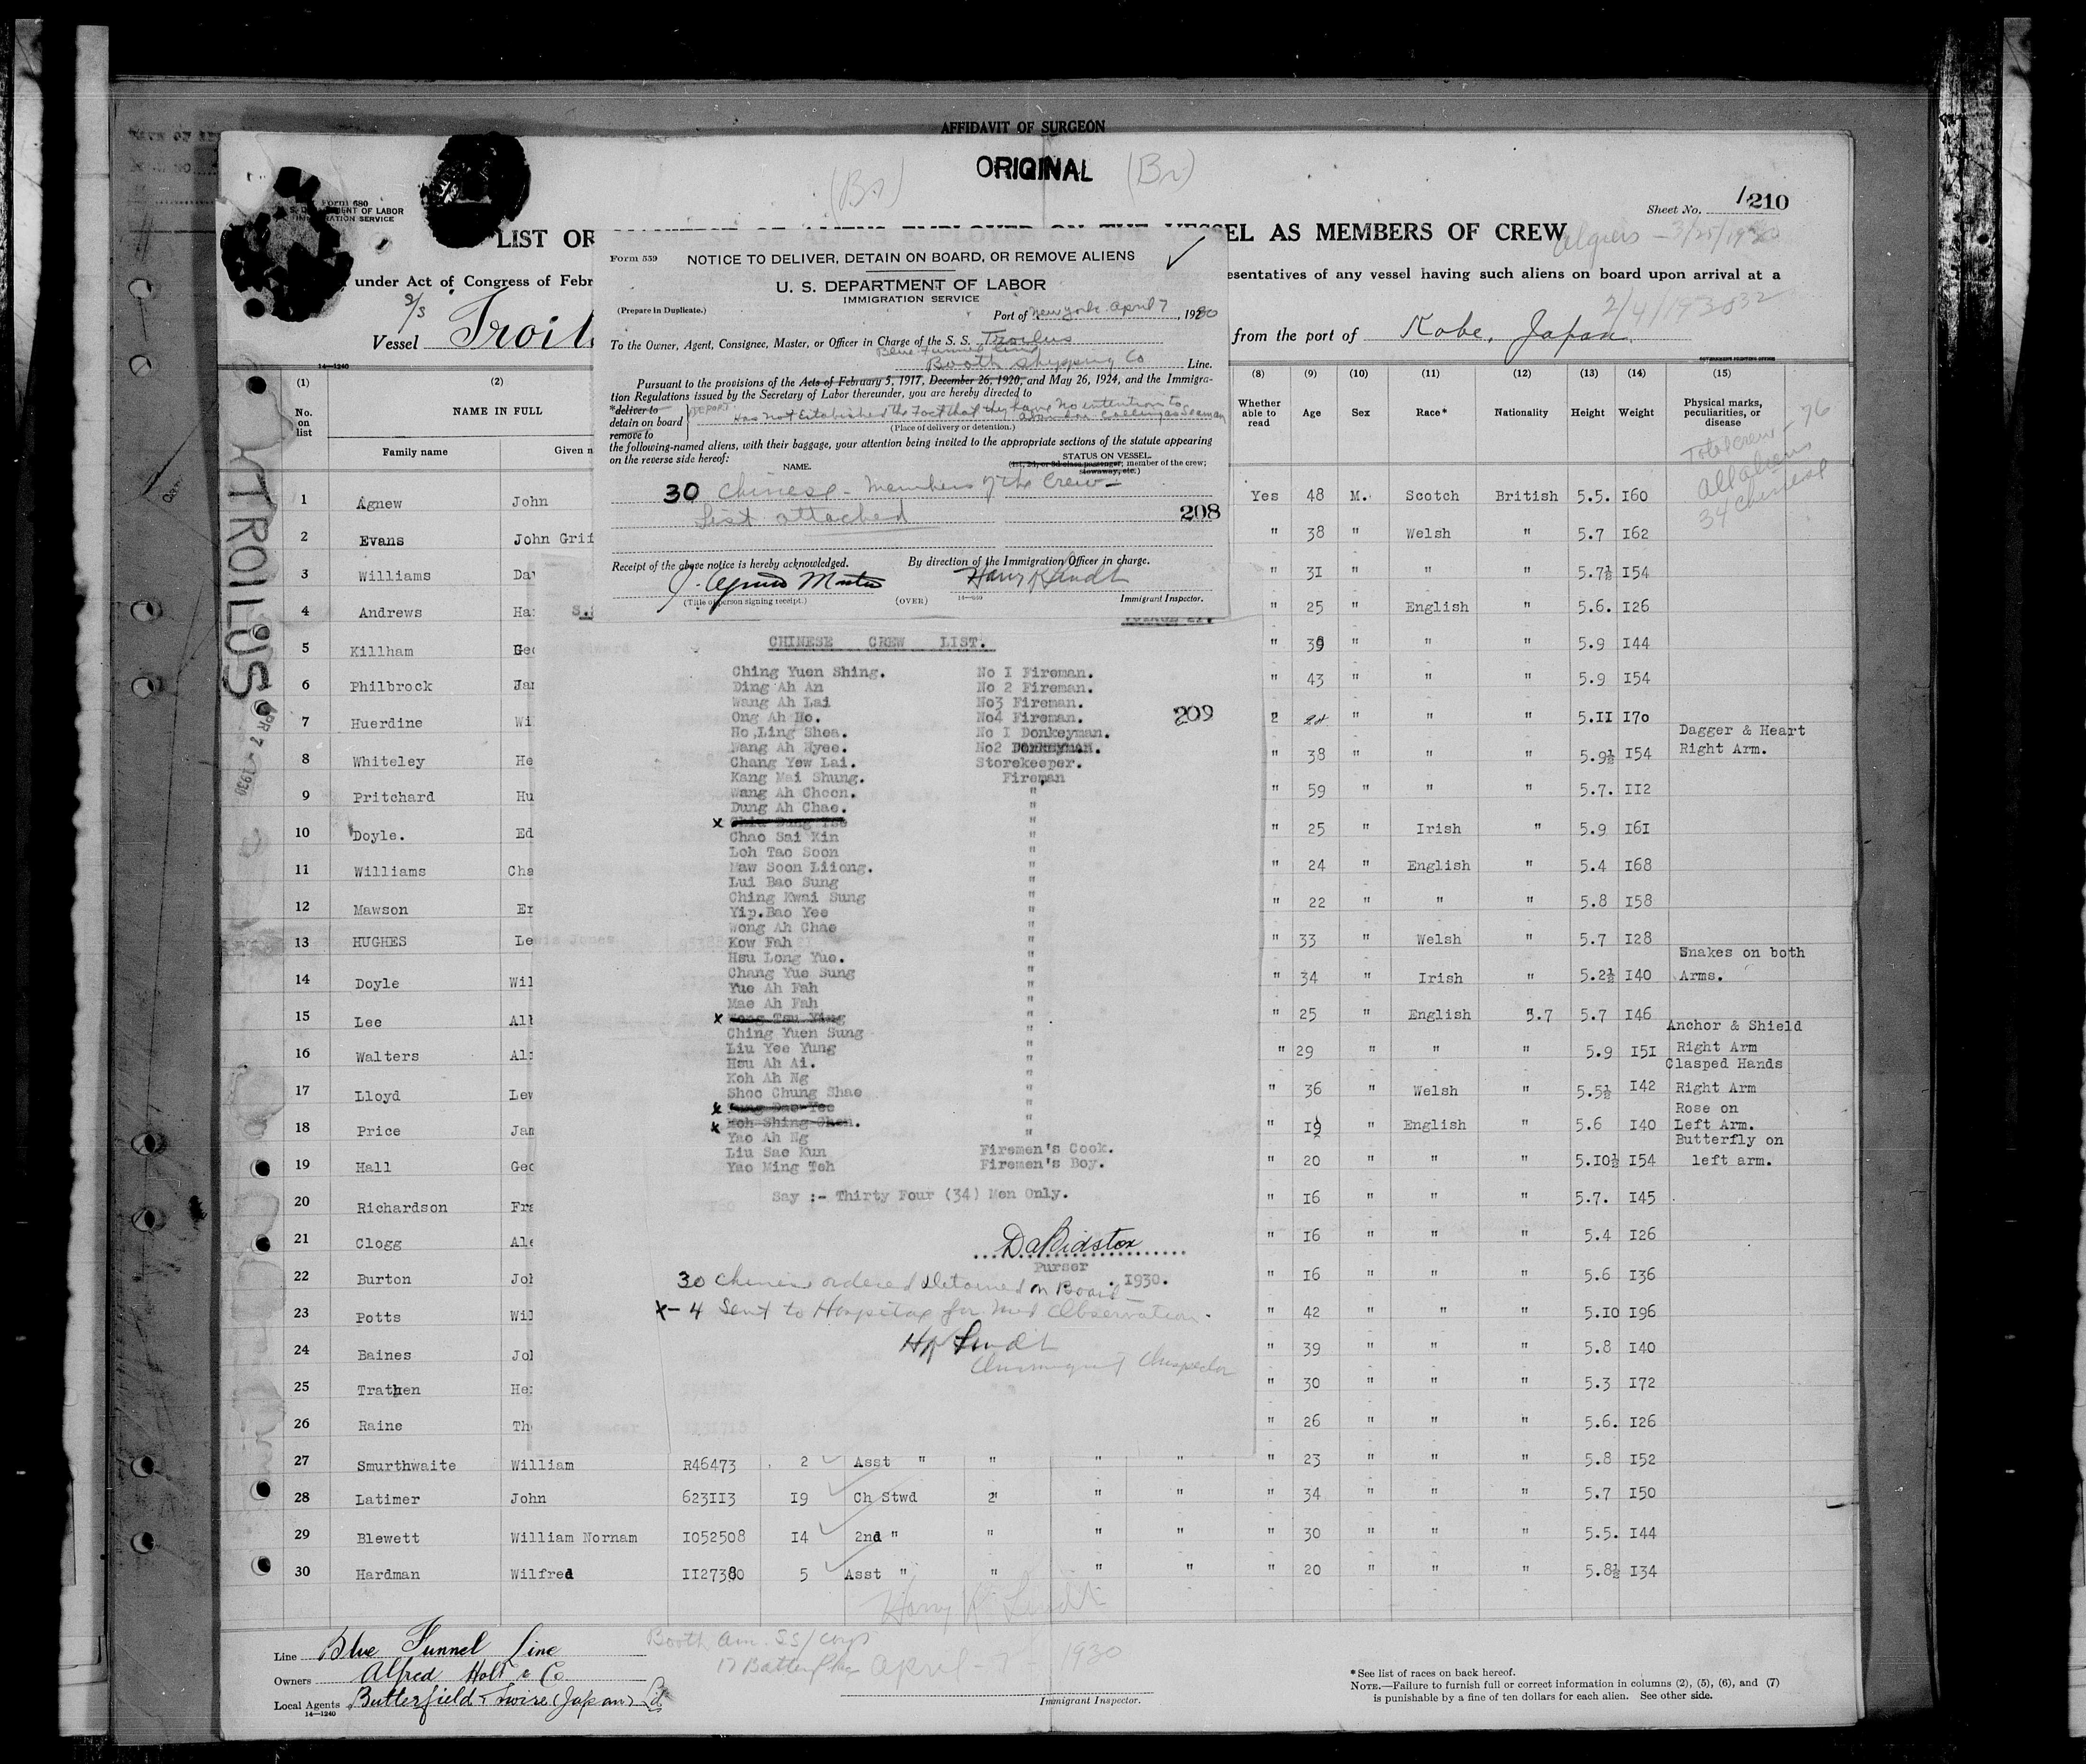 AFFIDAVIT OF SURGEON
ORIGINAL (Br)
(Br)
Form 680
U. S. DEPARTMENT OF LABOR
IMMIGRATION SERVICE
Sheet No. 1 210
LIST OR EL AS MEMBERS OF CREW
Algiers - 3/25/1930
under Act of Congress of Febr esentatives of any vessel having such aliens on board upon arrival at a
2/4/1930
Vessel S/S Troil from the port of Kobe, Japan
TROILUS
APR 7 - 1930
Form 559
NOTICE TO DELIVER, DETAIN ON BOARD, OR REMOVE ALIENS
U. S. DEPARTMENT OF LABOR
IMMIGRATION SERVICE
(Prepare in Duplicate.)
Port of New York April 7, 1930
To the Owner, Agent, Consignee, Master, or Officer in Charge of the S. S. Troilus
Blue Funnel Line
Booth Shipping Co Line.
Pursuant to the provisions of the Acts of February 5, 1917, December 26, 1920, and May 26, 1924, and the Immigra-
tion Regulations issued by the Secretary of Labor thereunder, you are hereby directed to
*deliver to
detain on board
remove to
has not Established the Fact that they have no intention to
abandon calling as Seaman
(Place of delivery or detention.)
the following-named aliens, with their baggage, your attention being invited to the appropriate sections of the statute appearing
on the reverse side hereof:
NAME.
STATUS ON VESSEL.
(1st, 2d, or 3d class passenger; member of the crew;
stowaway, etc.)
30 Chinese - Members of the Crew -
List attached
208
Receipt of the above notice is hereby acknowledged.
By direction of the Immigration Officer in charge.
J. Agnew Master
Harry K Lindt
(Title of person signing receipt.)
(OVER)
14—650
Immigrant Inspector.
CHINESE CREW LIST.
Ching Yuen Shing. No I Fireman.
Ding Ah An No 2 Fireman.
Wang Ah Lai No3 Fireman.
Ong Ah Ho. No4 Fireman.
209
Ho Ling Shea. No I Donkeyman.
Wang Ah Nyee. No2 Donkeyman.
Chang Yew Lai. Storekeeper.
Kang Mai Shung. Fireman
Wang Ah Choon. "
Dung Ah Chae. "
x Chiu Bung Tse "
Chao Sai Kin "
Loh Tao Soon "
Maw Soon Liiong. "
Lui Bao Sung "
Ching Kwai Sung "
Yip.Bao Yee "
Wong Ah Chae "
Kow Fah "
Hsu Long Yue. "
Chang Yue Sung "
Yue Ah Fah "
Mae Ah Fah "
x Wong Tsu Ying "
Ching Yuen Sung "
Liu Yee Yung "
Hsu Ah Ai. "
Koh Ah Ng "
Shoo Chung Shae "
x Bao Yee "
x Moh Shing Chen. "
Yao Ah Ng "
Liu Sae Kun Firemen's Cook.
Yao Ming Teh Firemen's Boy.
Say :- Thirty Four (34) Men Only.
Purser
. 1930.
30 Chinese ordered Detained on Board
x - 4 Sent to Hospital for Med Observation.
HK Lindt
Immigrant Inspector
14—1240
(1) (2) (8) (9) (10) (11) (12) (13) (14) (15)
No. on list
NAME IN FULL
Family name
Given n
Whether able to read
Age
Sex
Race*
Nationality
Height
Weight
Physical marks, peculiarities, or disease
Total crew - 76
All aliens
34 Chinese
1 Agnew John Yes 48 M. Scotch British 5.5. I60
2 Evans John Grif " 38 " Welsh " 5.7 I62
3 Williams Da " 3I " " " 5.7½ I54
4 Andrews Ha " 25 " English " 5.6. I26
5 Killham Geo " 39 " " " 5.9 I44
6 Philbrock Jam " 43 " " " 5.9 I54
7 Huerdine Wi " " " " 5.II I70
8 Whiteley He " 38 " " " 5.9½ I54 Dagger & Heart Right Arm.
9 Pritchard Hu " 59 " " " 5.7. II2
10 Doyle. Ed " 25 " Irish " 5.9 I6I
11 Williams Cha " 24 " English " 5.4 I68
12 Mawson Er " 22 " " " 5.8 I58
13 HUGHES Le " 33 " Welsh " 5.7 I28
14 Doyle Wil " 34 " Irish " 5.2½ I40 Snakes on both Arms.
15 Lee Alb " 25 " English 5.7 5.7 I46
16 Walters Al " 29 " " " 5.9 I5I Anchor & Shield Right Arm
17 Lloyd Lew " 36 " Welsh " 5.5½ I42 Clasped Hands Right Arm
18 Price Jam " I9 " English " 5.6 I40 Rose on Left Arm.
19 Hall Geo " 20 " " " 5.I0½ I54 Butterfly on left arm.
20 Richardson Fra " I6 " " " 5.7. I45
21 Clogg Ale " I6 " " " 5.4 I26
22 Burton Joh " I6 " " " 5.6 I36
23 Potts Wil " 42 " " " 5.I0 I96
24 Baines Joh " 39 " " " 5.8 I40
25 Trathen He " 30 " " " 5.3 I72
26 Raine Th " 26 " " " 5.6. I26
27 Smurthwaite William R46473 2 Asst " " " " " 23 " " " 5.8 I52
28 Latimer John 623II3 I9 Ch Stwd 2" " " " 34 " " " 5.7 I50
29 Blewett William Nornam I052508 I4 2nd " " " " " 30 " " " 5.5. I44
30 Hardman Wilfred II27380 5 Asst " " " " " 20 " " " 5.8½ I34
Harry K. Lindt
Line Blue Funnel Line
Owners Alfred Holt & Co
Local Agents Butterfield & Swire (Japan) Ld
14—1240
Booth Am. SS/Corp
17 Battery Place
April - 7 - 1930
Immigrant Inspector.
* See list of races on back hereof.
NOTE.—Failure to furnish full or correct information in columns (2), (5), (6), and (7)
is punishable by a fine of ten dollars for each alien. See other side.